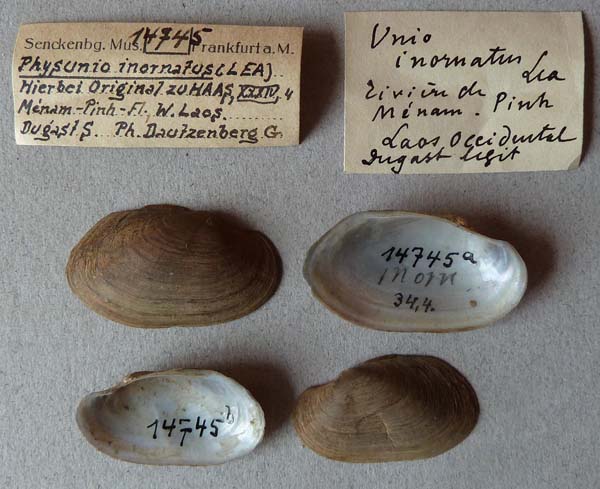 Senckenbg. Mus. 14745 Frankfurt a. M.
Physunio inornatus (LEA)
Hierbei Original zu HAAS,
p. XXXIV, 4
Ménam-Pinh-Fl., W. Laos.
Dugast S. Ph. Dautzenberg G.
Unio
inornatus Lea
rivière de
Ménam. Pinh
Laos Occidental
Dugast legit
14745 a
inorn
34,4.
14745 b